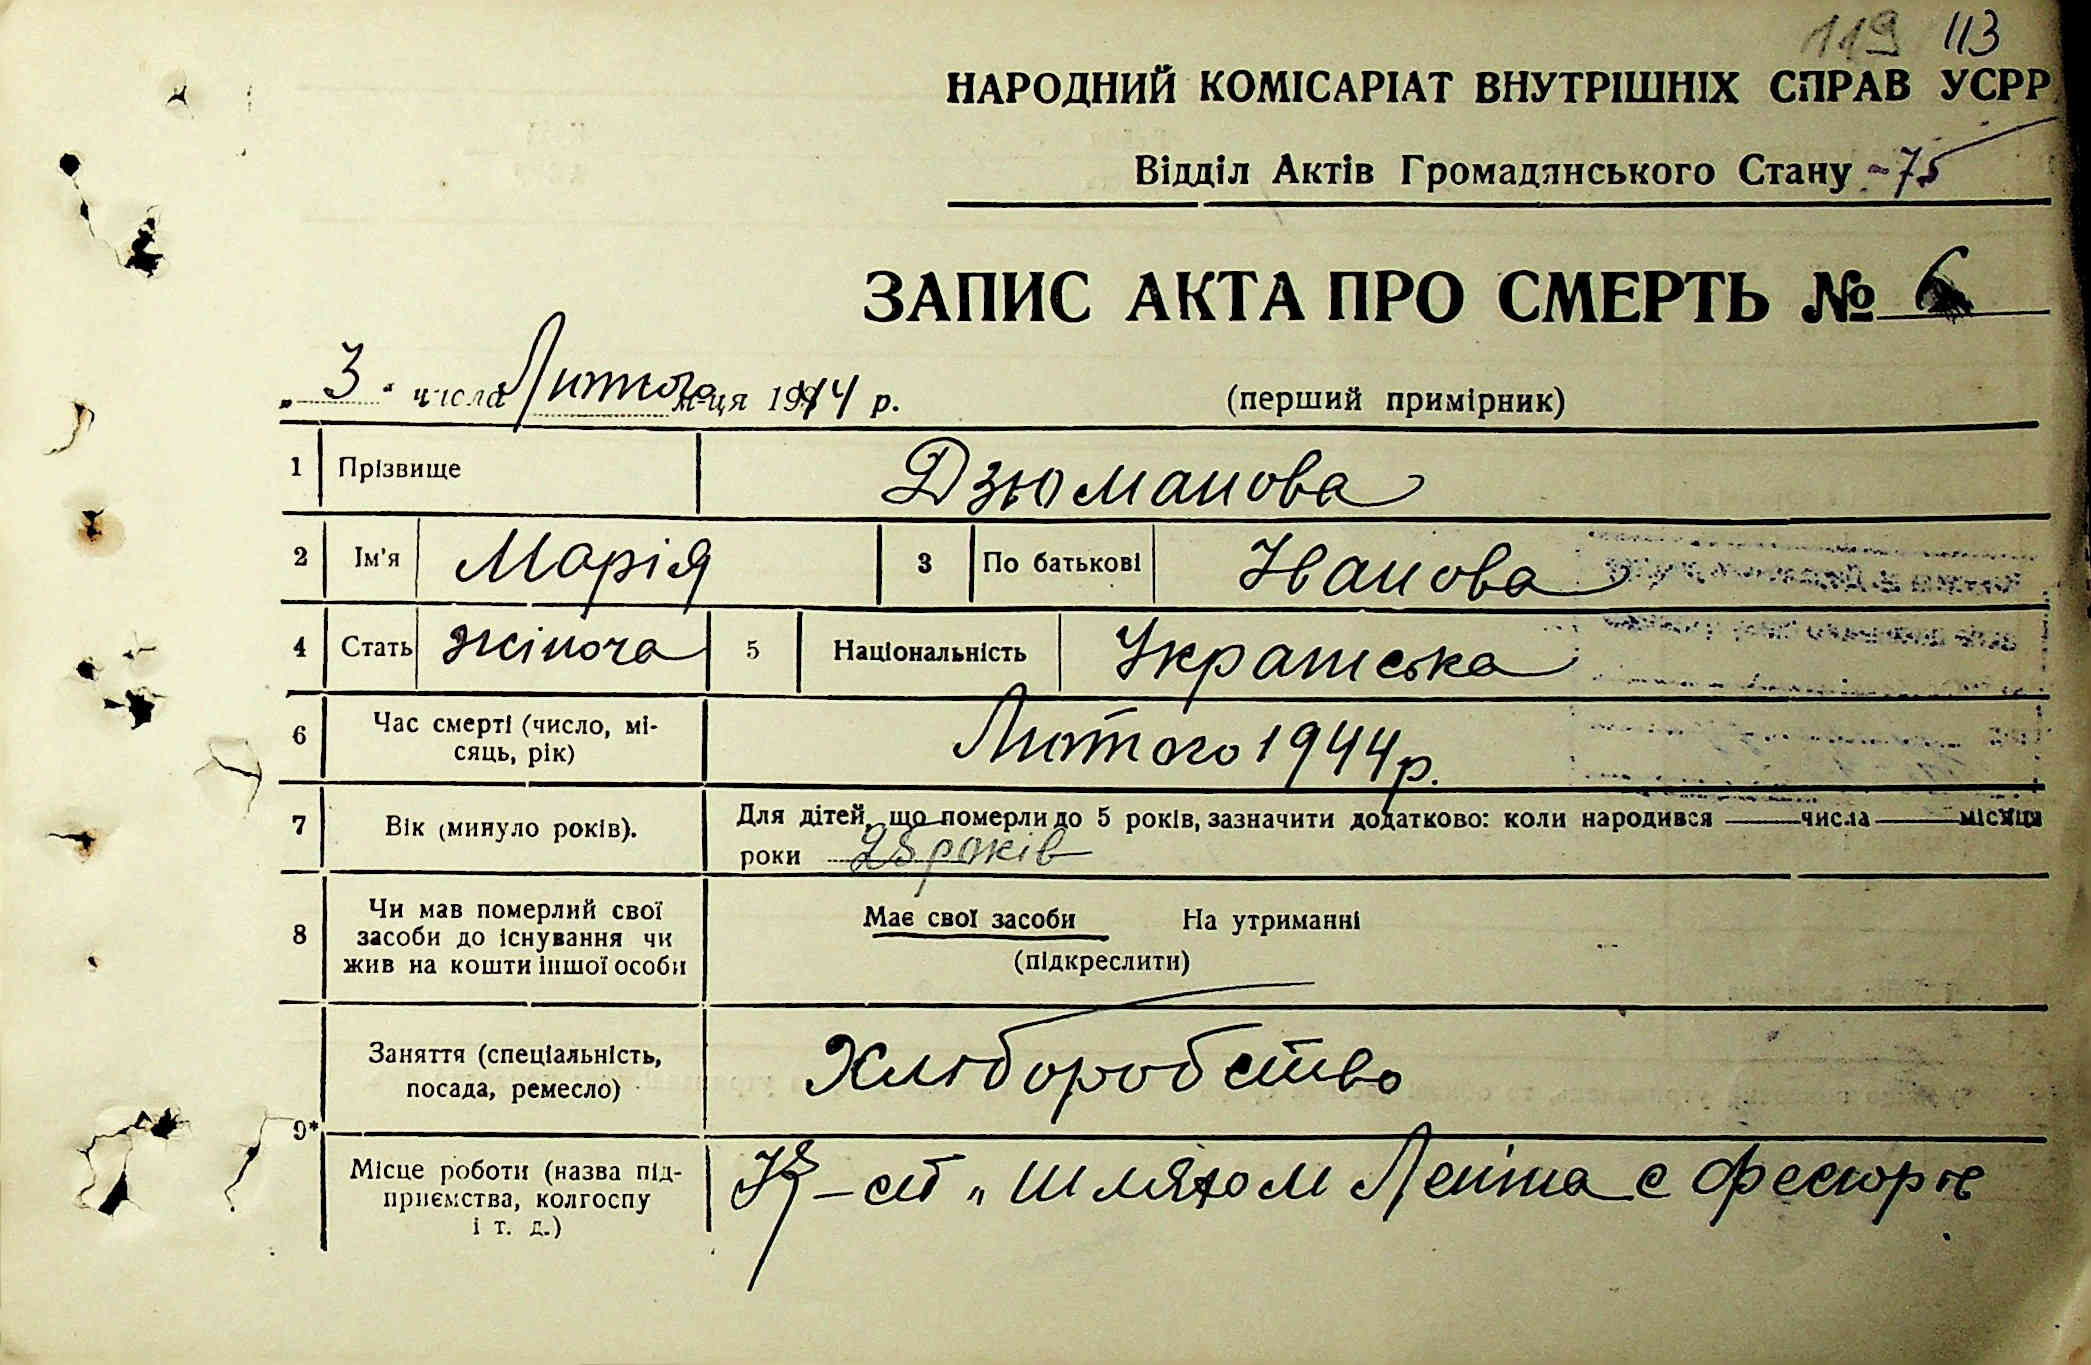 119 113
НАРОДНИЙ КОМІСАРІАТ ВНУТРІШНІХ СПРАВ УСРР
Відділ Актів Громадянського Стану -75
ЗАПИС АКТА ПРО СМЕРТЬ № 6
„ 3 " числа Лютого м-ця 1944 р. (перший примірник)
1 Прізвище Дзюманова
2 Ім'я Марія 3 По батькові Іванова
4 Стать жіноча 5 Національність Українська
6 Час смерті (число, мі-
сяць, рік) Лютого 1944 р.
7 Вік (минуло років). Для дітей, що померли до 5 років, зазначити додатково: коли народився числа місяця
роки 28 років
8 Чи мав померлий свої
засоби до існування чи
жив на кошти іншої особи
Має свої засоби На утриманні
(підкреслити)
9*
Заняття (спеціальність,
посада, ремесло) Хліборобство
Місце роботи (назва під-
приємства, колгоспу
і т. д.)
„ Шляхом Леніна с